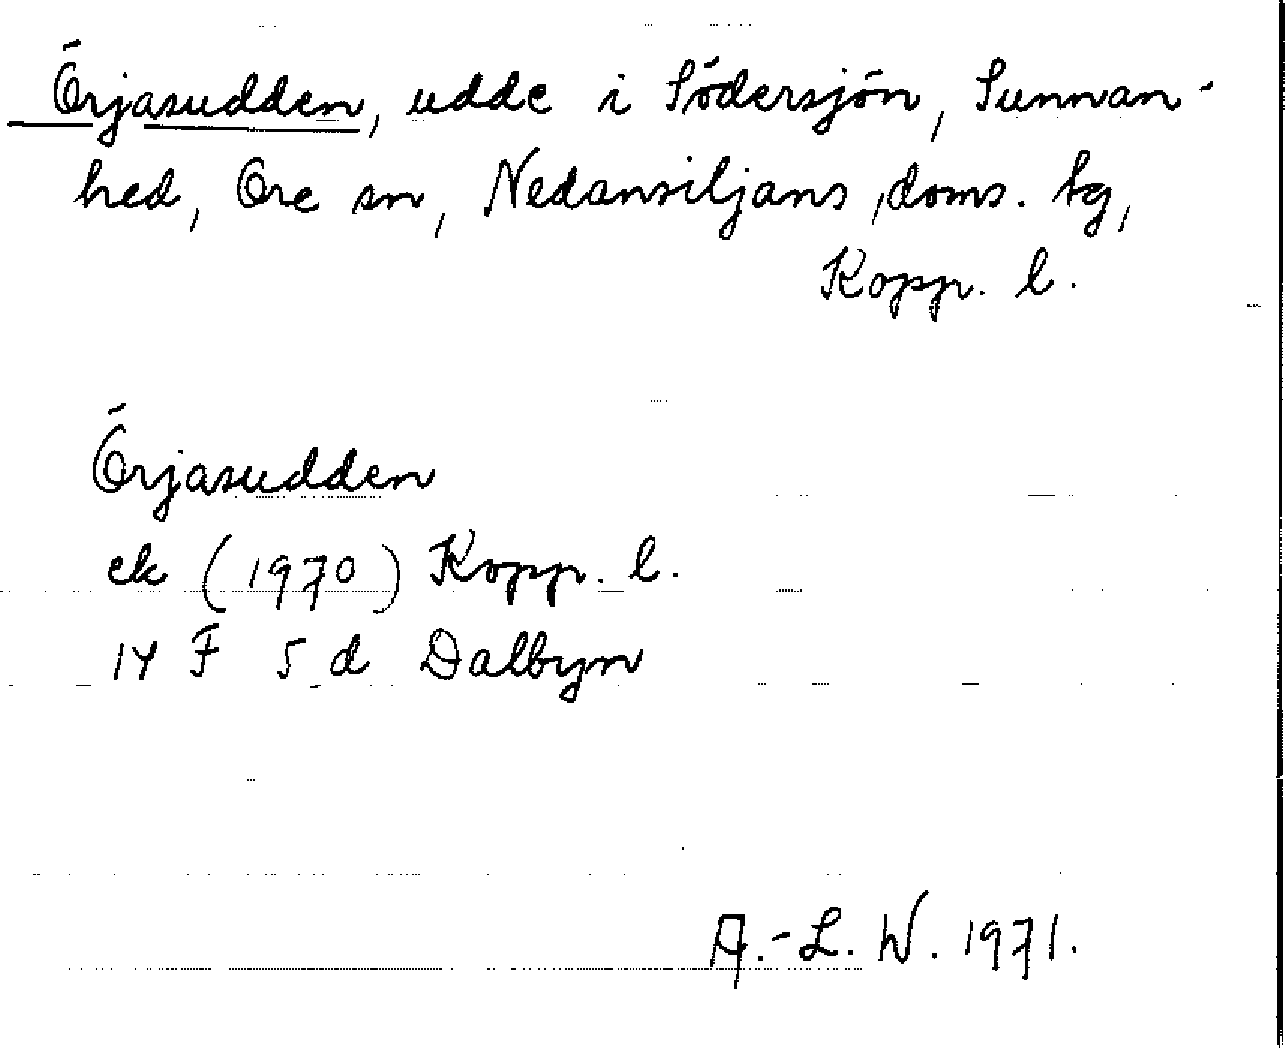 Örjasudden, udde i Södersjön, Sunnan-
hed, Ore sn, Nedansiljans doms. tg,
Kopp. l.
Örjasudden
ek (1970) Kopp. l.
14 F 5 d Dalbyn
A.-L. W. 1971.